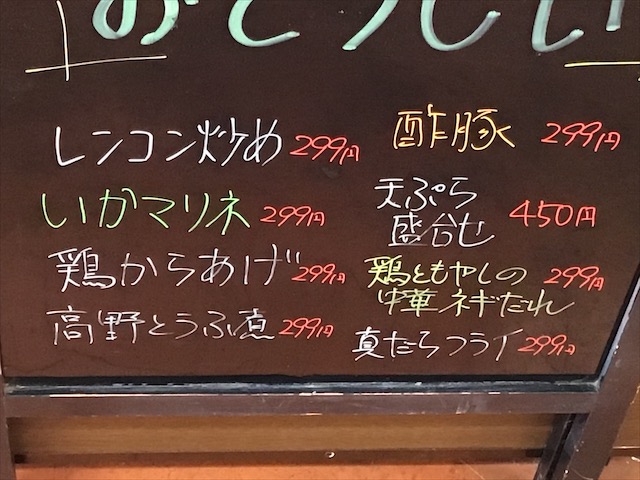 レンコン炒め 299円
いかマリネ 299円
鶏からあげ 299円
高野とうふ煮 299円
酢豚 299円
天ぷら
盛合せ 450円
鶏ともやしの 299円
中華ネギだれ
真だらフライ 299円